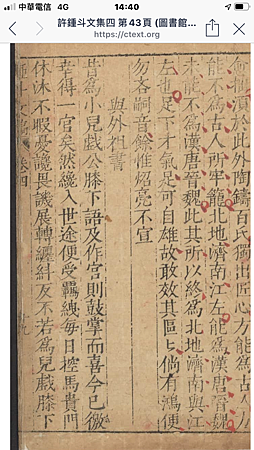 中華電信 4G 14:40
許鍾斗文集四 第43頁 (圖書館...
https://ctext.org
於此外陶鑄百氏獨出匠心方能為古人
能不為古人所牢籠北地濟南江左能為漢唐晉魏
未能不為漢唐晉魏此其所以終為北地濟南與江
左也足下才氣足可自雄故敢效其區〻倘有鴻便
勿吝嗣音餘惟炤亮不宣
與外祖書
昔為小兒戲公膝下語及作官則鼓掌而喜今已徼
幸得一官矣然纔入世途便受羈絏每日控馬貴門
休沐不暇憂讒畏譏展轉纏糾反不若為兒戲膝下
卷四